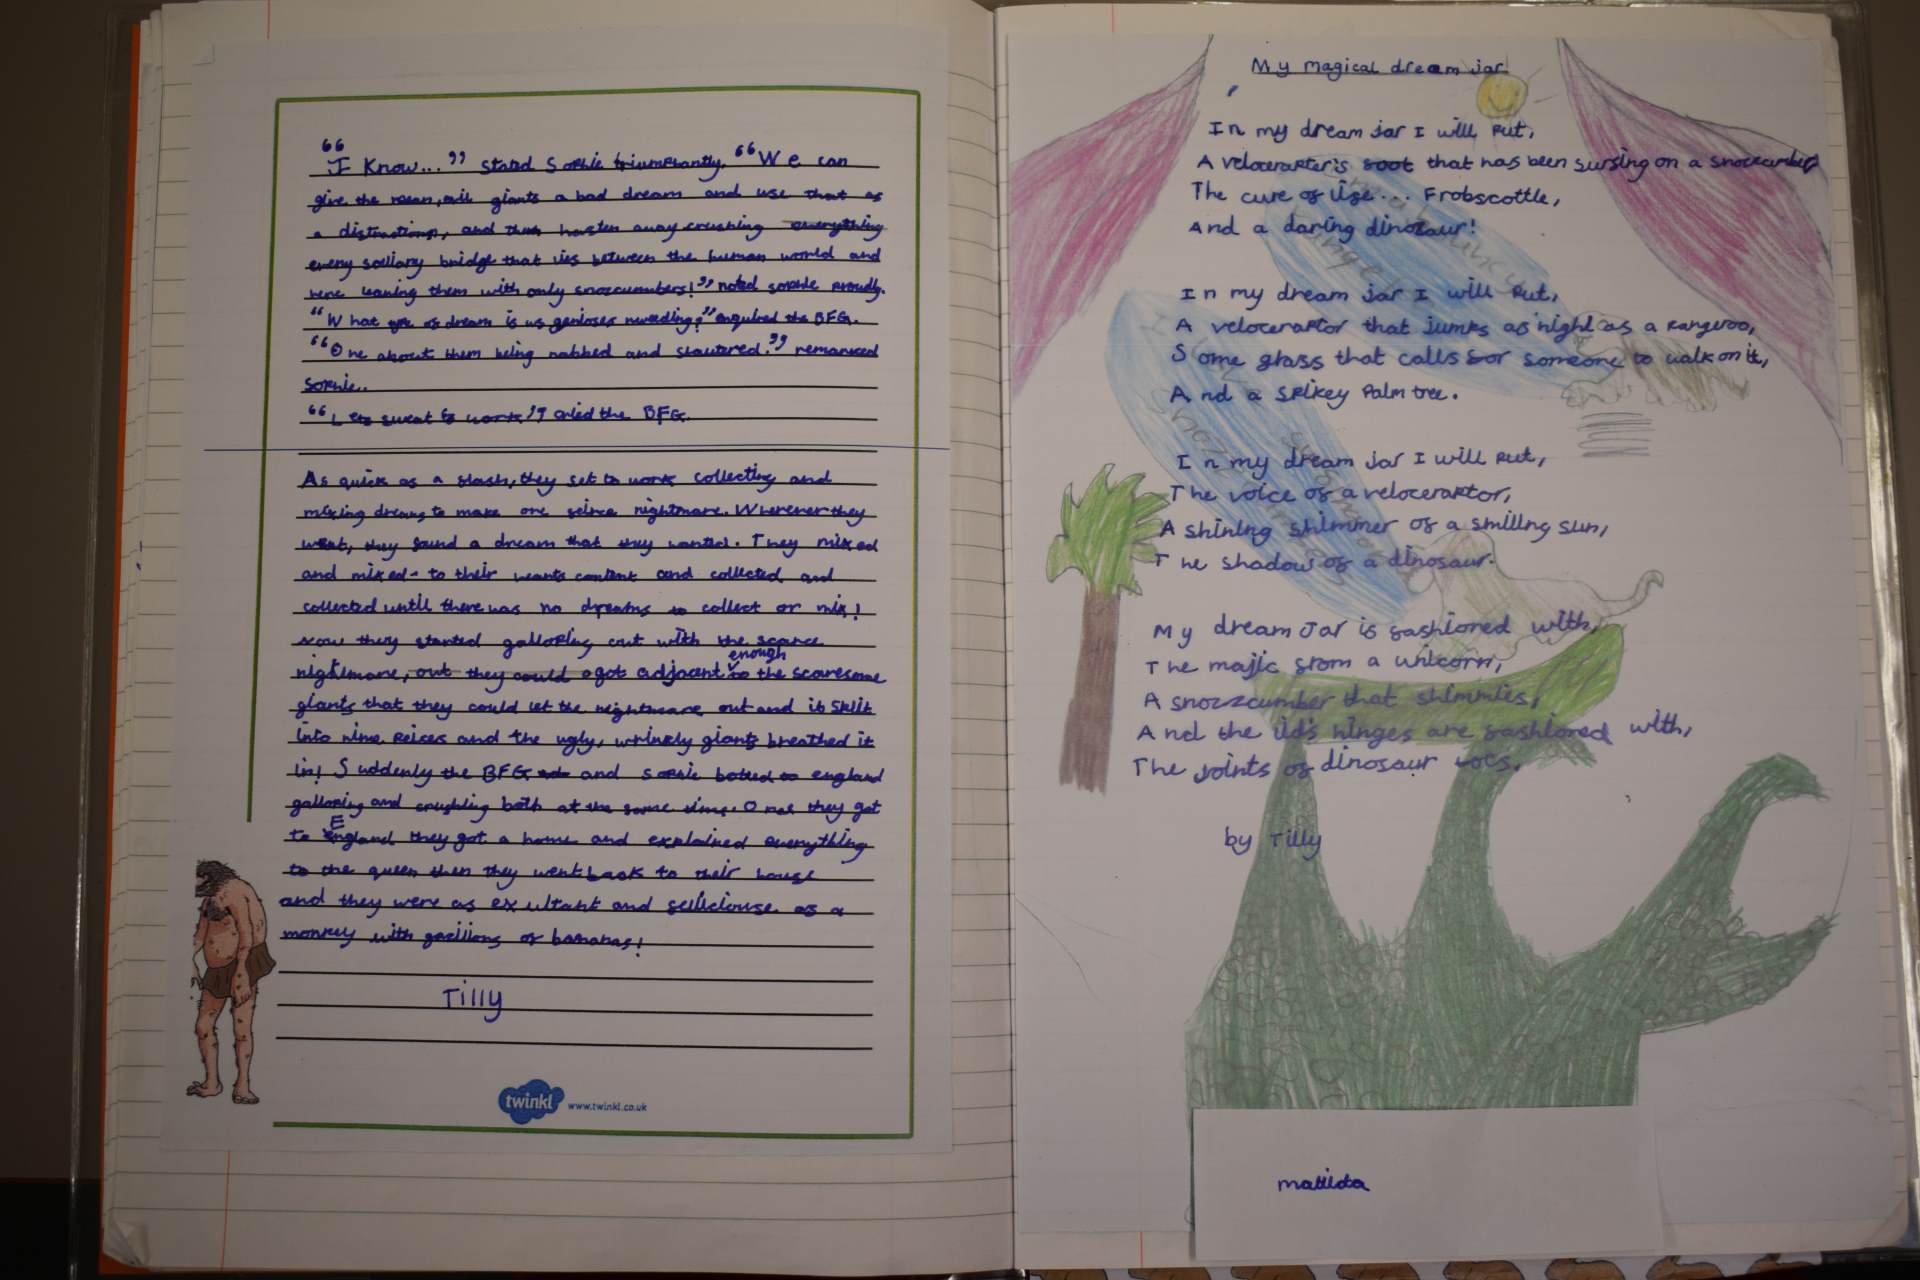 "I know..." stated Sophie triumphantly. "We can
give the mean, evil giants a bad dream and use that as
a distraction, and then hasten away crushing everything
every sollary bridge that lies between the human world and
here leaving them with only snozcumbers!" noted sophie proudly.
"What type of dream is us genioses needing?" enquired the BFG.
"One about them being nabbed and slautered." remarked
sophie..
"Lets sweat to work" cried the BFG.
As quick as a flash, they set to work collecting and
mixing dreams to make one feirce nightmare. Wherever they
went, they found a dream that they wanted. They mixed
and mixed to their hearts content and collected and
collected until there was no dreams to collect or mix!
Now they started galloping out with the scarce
enough
nightmare, out they could got adjacent to the scaresome
giants that they could let the nightmare out and it split
into nine peices and the ugly, wrinkly giants breathed it
in! Suddenly the BFG and Sophie bolted to england
galloping and crushing both at the same time. Once they got
to England they got a home and explained everything
to the queen then they went back to their house
and they were as exultant and feliciouse as a
monkey with gazillions of bananas!
Tilly
twinkl
www.twinkl.co.uk
My magical dream jar
In my dream jar I will put,
A velocerapter's foot that has been surfing on a snozcumber
The cure of life... Frobscottle,
And a daring dinozaur!
In my dream jar I will put,
A veloceraptor that jumps as high as a kangeroo,
Some grass that calls for someone to walk on it,
And a spikey palm tree.
In my dream jar I will put,
The voice of a veloceraptor,
A shining shimmer of a smiling sun,
The shadow of a dinosaur.
My dream Jar is fashioned with,
The majic from a unicorn,
A snozzcumber that shimmies,
And the lid's hinges are fashioned with,
The joints of dinosaur toes.
by Tilly
matilda